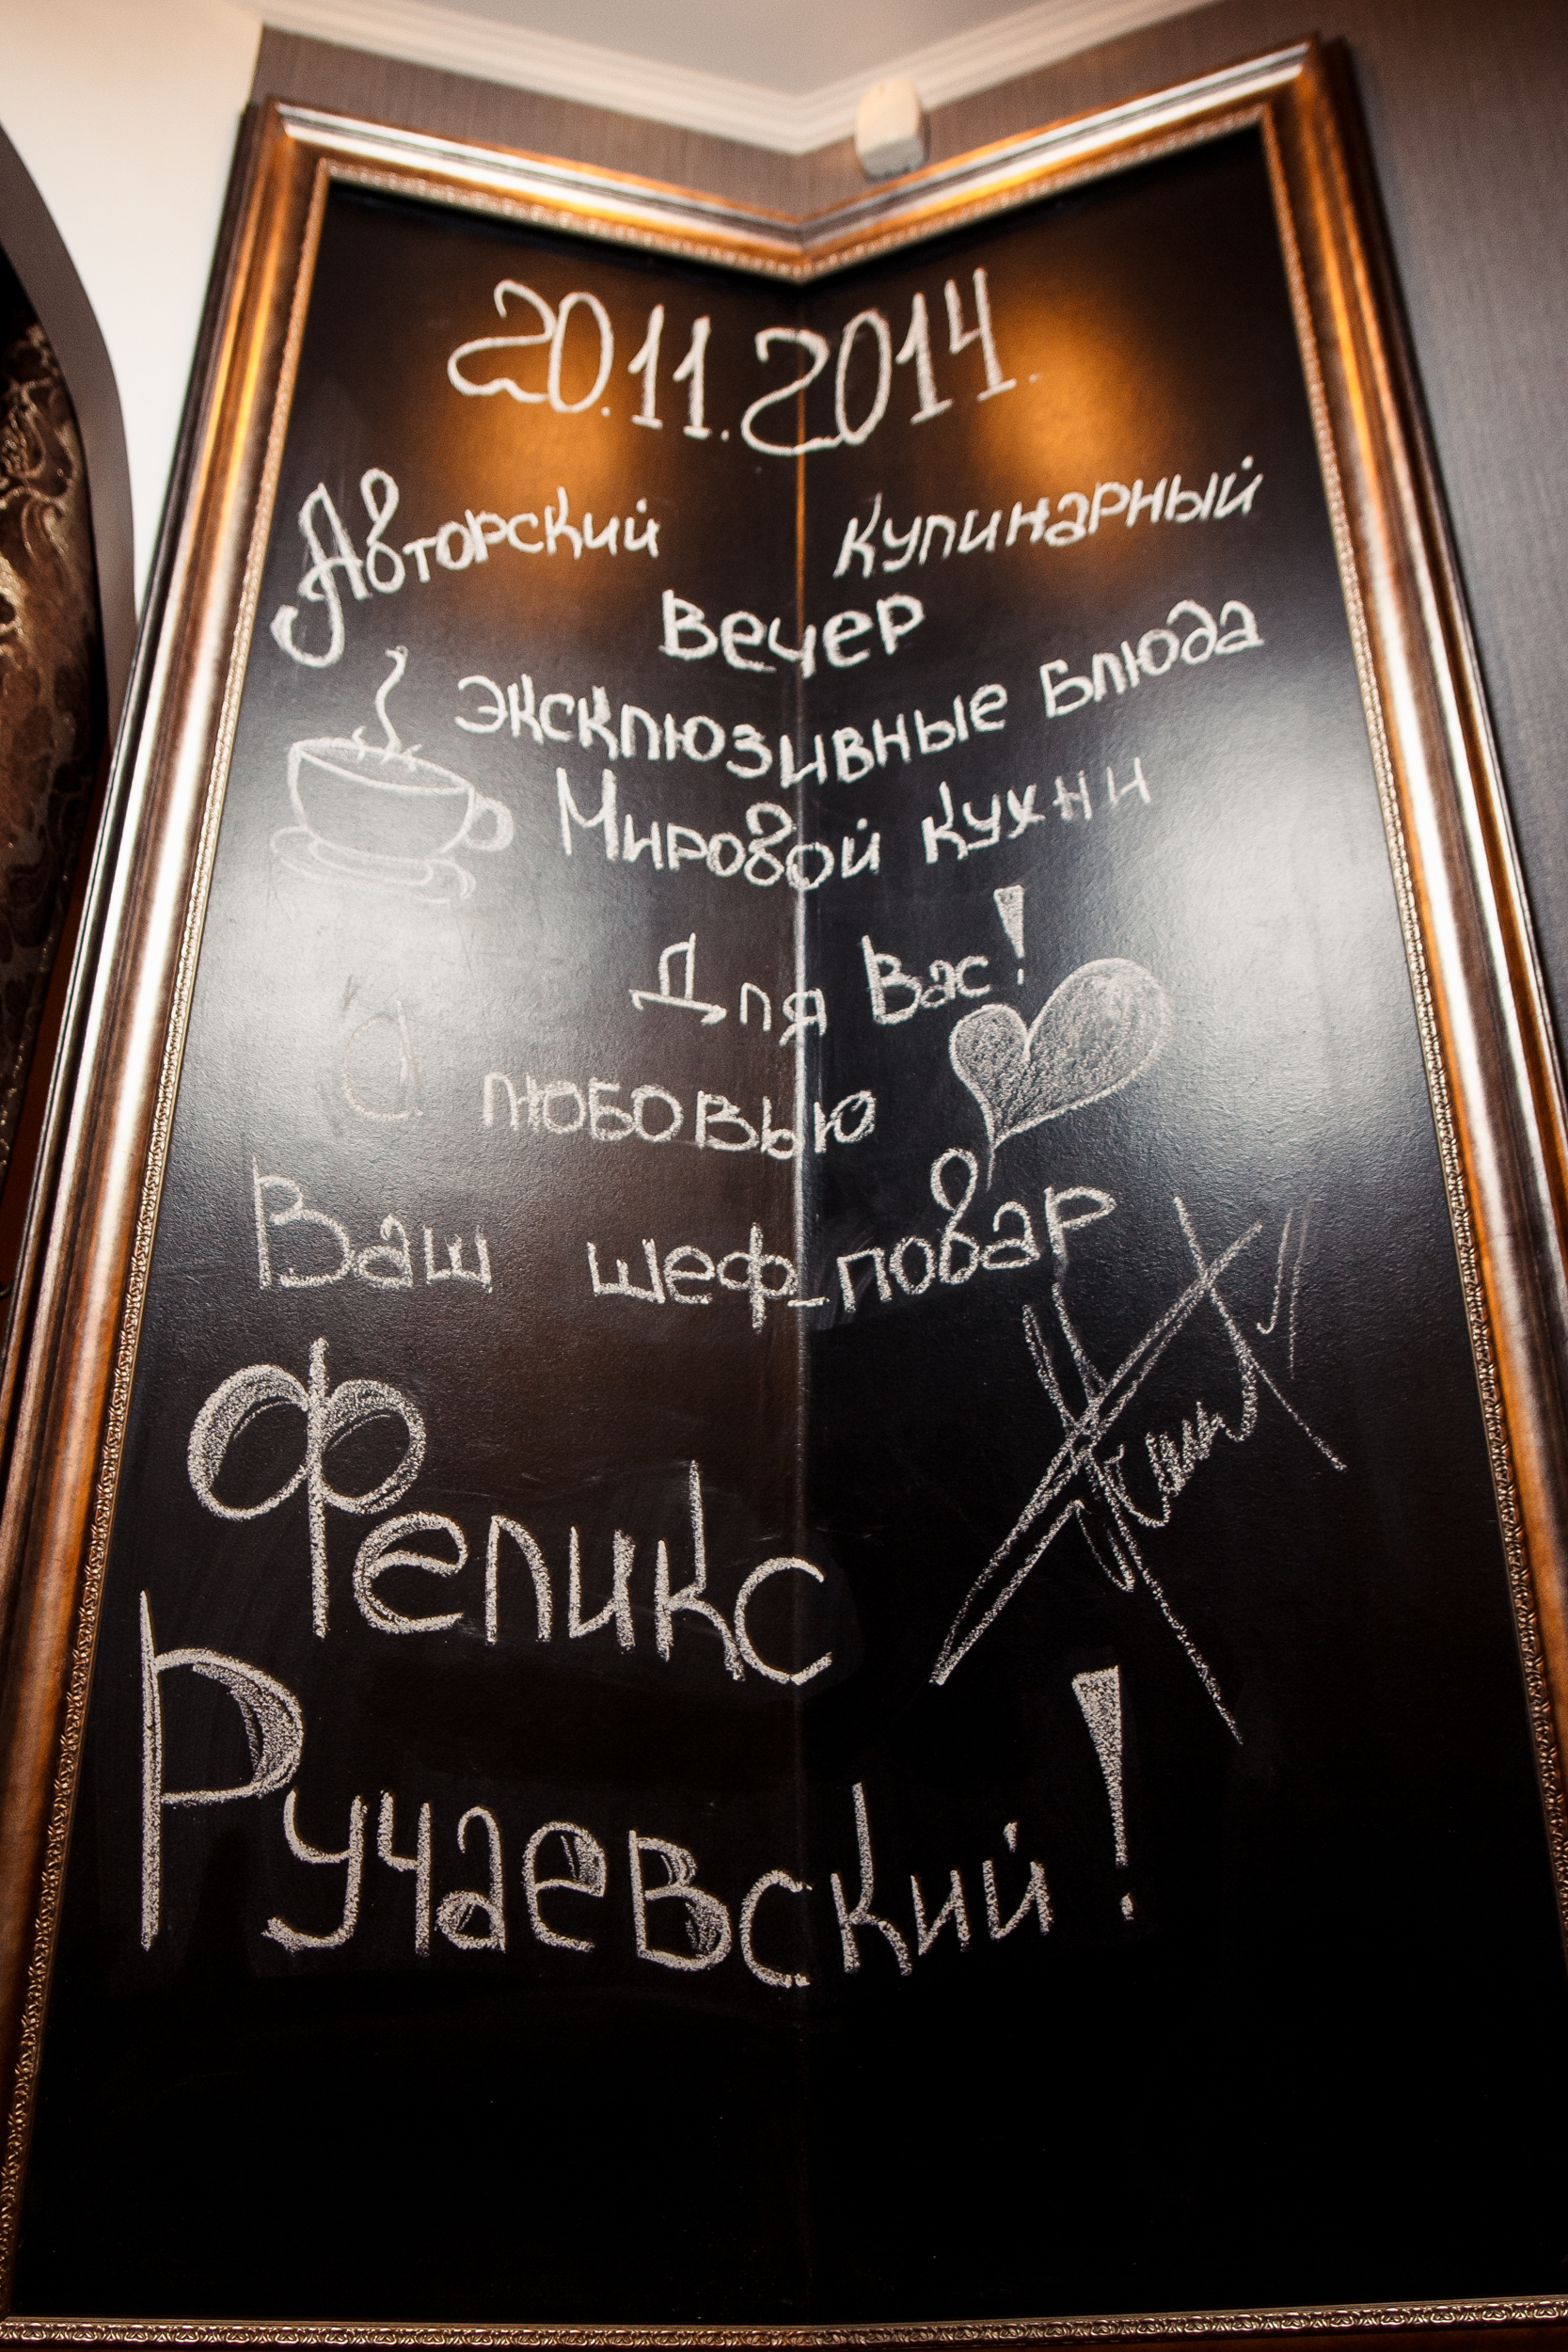 20.11.2014.
Авторский Кулинарный
Вечер
Эксклюзивные Блюда
Мировой Кухни
Для Вас!
С любовью
Ваш шеф-повар
Феликс
Ручаевский!